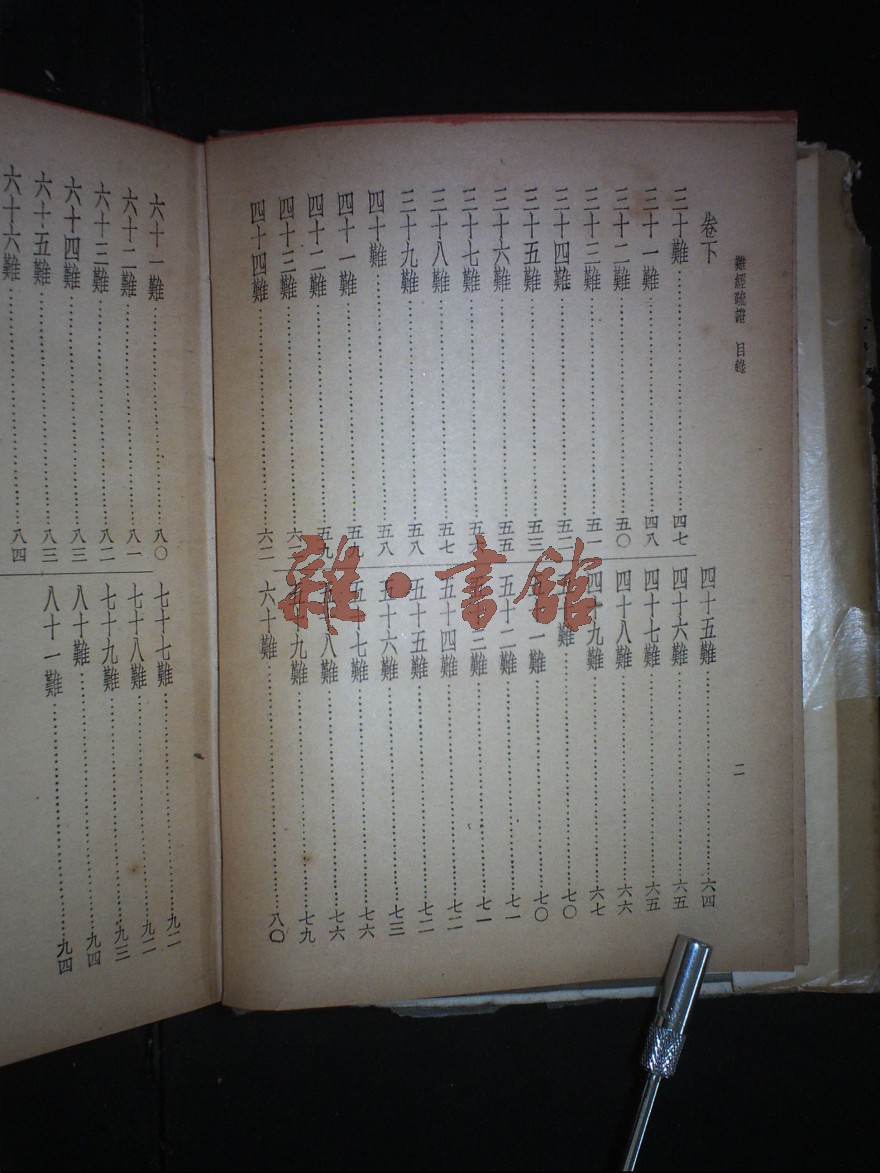 難經疏證 目錄
二
卷下
三十難……四七
三十一難……四八
三十二難……五〇
三十三難……五一
三十四難……五二
三十五難……五三
三十六難……五五
三十七難……
三十八難……五七
三十九難……五八
四十難……五八
四十一難……五九
四十二難……五九
四十三難……
四十四難……六二
四十五難……六四
四十六難……六五
四十七難……六五
四十八難……六六
四十九難……六七
難……七〇
一難……七〇
五十二難……七一
三難……七一
五十四難……七二
五十五難……七二
五十六難……七三
七難……七六
八難……七六
九難……七九
六十難……八〇
六十一難……八〇
六十二難……八一
六十三難……八二
六十四難……八三
六十五難……八三
六十六難……八四
七十七難……九二
七十八難……九二
七十九難……九三
八十難……九四
八十一難……九四
雜·書館